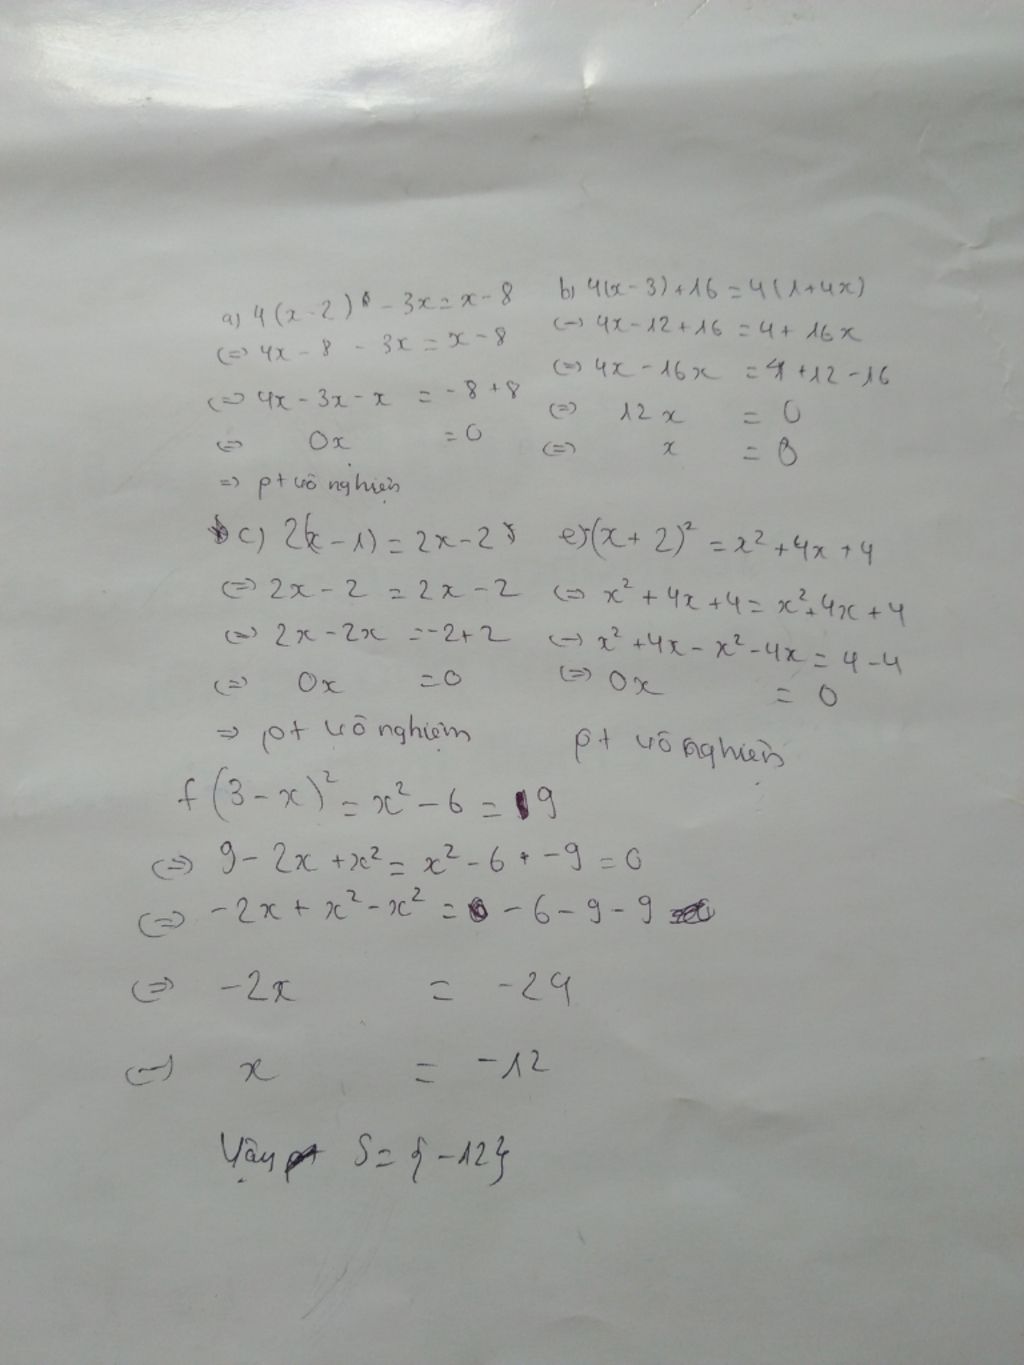 a) 4(x-2) - 3x = x - 8
(=) 4x - 8 - 3x = x - 8
(=) 4x - 3x - x = -8 + 8
(=) 0x = 0
=> pt vô nghiệm
b) 4(x-3) + 16 = 4(1+4x)
(=) 4x - 12 + 16 = 4 + 16x
(=) 4x - 16x = 4 + 12 - 16
(=) 12x = 0
(=) x = 0
c) 2(x-1) = 2x - 2
(=) 2x - 2 = 2x - 2
(=) 2x - 2x = -2 + 2
(=) 0x = 0
=> pt vô nghiệm
e) (x+2)² = x² + 4x + 4
(=) x² + 4x + 4 = x² + 4x + 4
(=) x² + 4x - x² - 4x = 4 - 4
(=) 0x = 0
pt vô nghiệm
f (3-x)² = x² - 6 = 9
(=) 9 - 2x + x² = x² - 6 + -9 = 0
(=) -2x + x² - x² = -6 - 9 - 9
(=) -2x = -24
(=) x = -12
Vậy S = {-12}